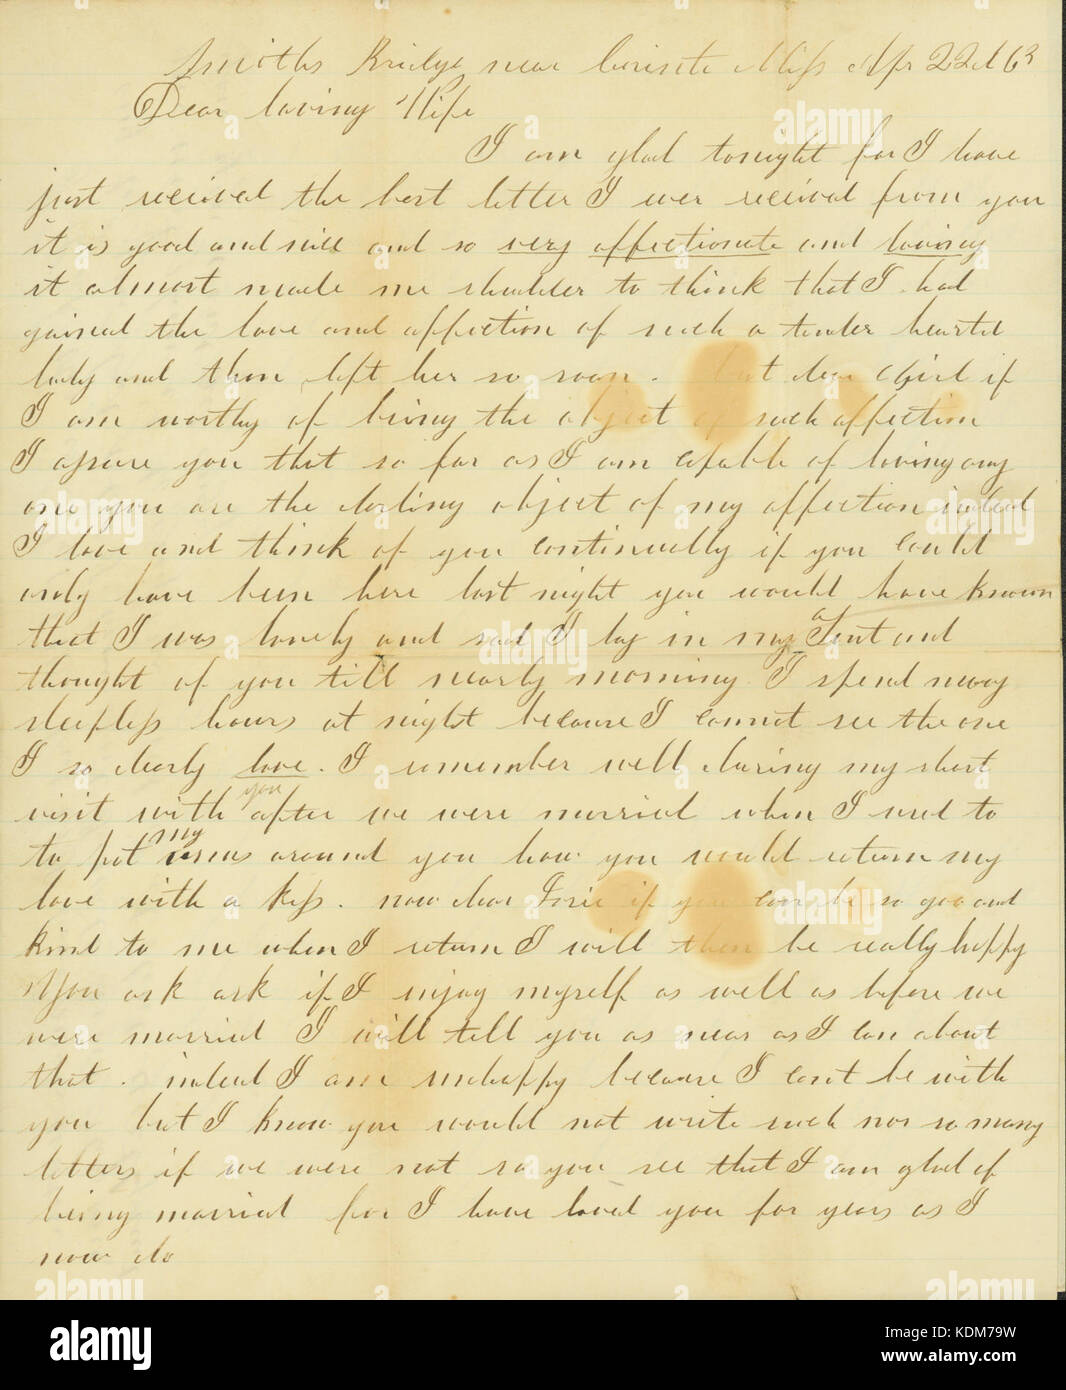 Smiths Bridge near Corinth Miss Apr 22d 63
Dear loving Wife
I am glad tonight for I have
just received the best letter I ever received from you
it is good and nice and so very affectionate and loving
it almost made me shudder to think that I had
gained the love and affection of such a tender hearted
lady and then left her so soon. but dear girl if
I am worthy of being the object of such affection
I assure you that so far as I am capable of loving any
one you are the darling object of my affection indeed
I love and think of you continually if you could
only have been here last night you would have known
that I was lonely and sad I lay in my Tent and
thought of you till nearly morning I spend many
sleepless hours at night because I cannot see the one
I so dearly love. I remember well during my short
visit with you after we were married when I used to
to put my arms around you how you would return my
love with a kiss. now dear if you can be so goo and
kind to me when I return I will then be really happy
You ask ask if I injoy myself as well as before we
were married I will tell you as near as I can about
that. indeed I am unhappy because I cant be with
you but I know you would not write such nor so many
letters if we were not so you see that I am glad of
being married for I have loved you for years as I
now do
alamy
a
Image ID: KDM79W
www.alamy.com